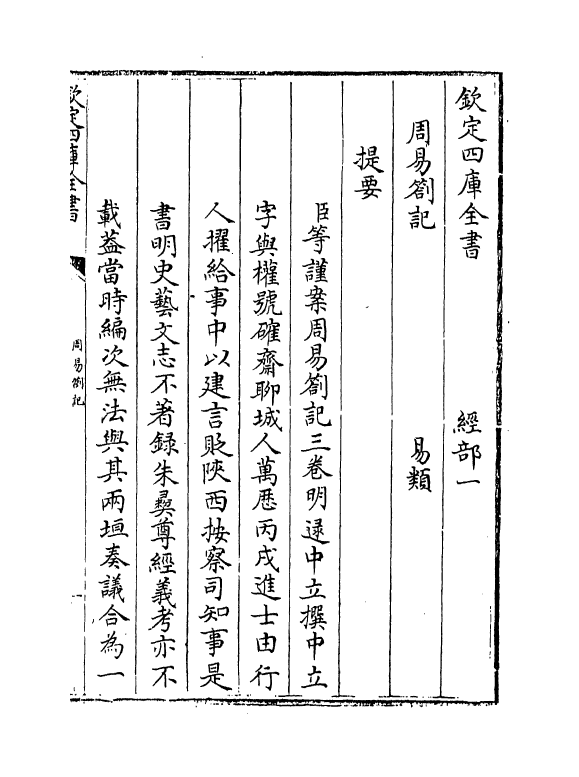 欽定四庫全書　經部一
周易劄記　易類
提要
臣等謹案周易劄記三卷明逯中立撰中立
字與權號確齋聊城人萬歴丙戌進士由行
人擢給事中以建言貶陜西按察司知事是
書明史藝文志不著録朱彛尊經義考亦不
載葢當時編次無法與其兩垣奏議合為一
欽定四庫全書
周易劄記
一